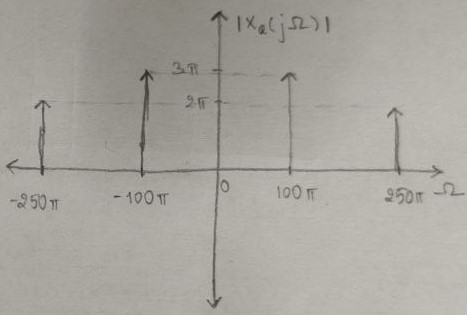 |Xa(jΩ)|
3π
2π
-250π -100π 0 100π 250π Ω